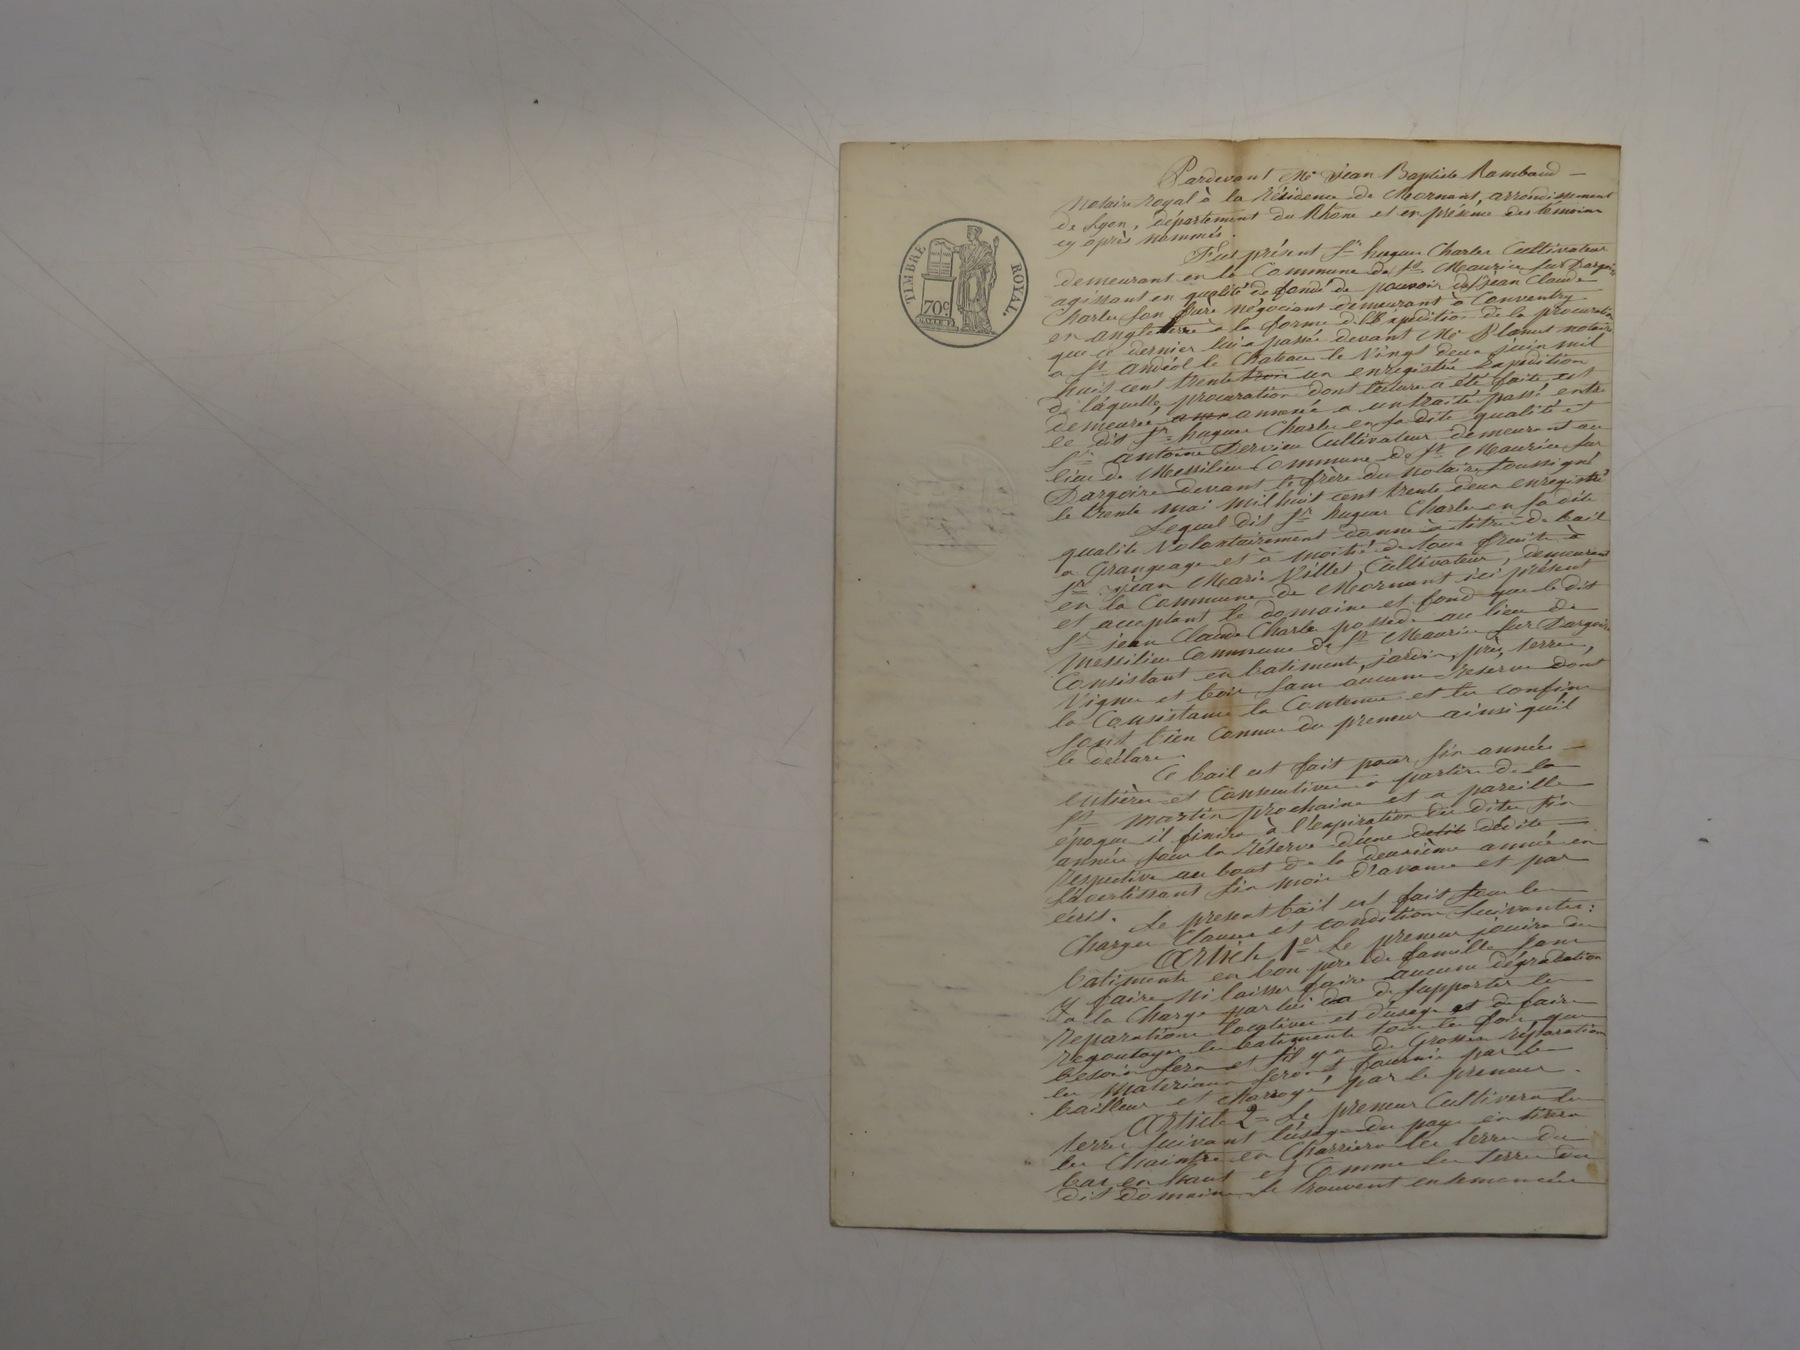 TIMBRE ROYAL.
70c
Pardevant Me Jean Baptiste Rambaud
Notaire royal à la Résidence de Mornant, arrondissement
de Lyon, département du Rhône et en présence des temoins
cy après nommés.
Fut présent Sr hugues Charles Cultivateur
demeurant en la Commune de St Maurice sur Dargoire
agissant en qualité de fondé de pouvoir de Jean Claude
Charles son frère négociant demeurant à Conventry
en angleterre à la forme de l'Expédition de la procuration
que ce dernier lui a passée devant Me Planus notaire
a St andéol le Chateau le Vingt deux juin mil
huit cent trente trois un enregistrée Expédition
de laquelle procuration dont lecture a été faite est
demeurée annexée a un traité passé entre
le dit Sr hugues Charles en sa dite qualité et
Sr antoine Dervieu Cultivateur demeurant au
lieu de Messilieu Commune de St Maurice sur
Dargoire devant le frère du notaire soussigné
le trente mai mil huit cent trente deux enregistré
Lequel dit Sr hugues Charles en sa dite
qualité Volontairement donne à titre de bail
a Grangeage et à moitié de tous fruits à
Sr jean Marie Villet, Cultivateur, demeurant
en la Commune de Mornant ici présent
et acceptant, le domaine et fond que le dit
Sr jean Claude Charles possède au lieu de
Messilieu Commune de St Maurice sur Dargoire
Consistant en batiments, jardin, près, terres,
Vignes et bois sans aucune Reserve dont
la Consistance la Contenue et les confins
sont bien connus du preneur ainsi qu'il
le déclare.
Ce bail est fait pour six années
entières et Consecutives a partir de la
St martin prochaine et a pareille
époque il finira à l'expiration des dites six
années sous la Réserve d'une dedit dédite
respective au bout de la deuxième année en
s'avertissant six mois d'avance et par
écrit.
Le present bail est fait sous les
Charges Clauses et conditions suivantes:
Article 1er Le preneur jouira des
batiments en bon père de famille sans
y faire ni laisser faire aucune dégradation
a la Charge par lui de supporter les
Reparations locatives et d'usage et de faire
regoutoyer les batiments tous les fois que
besoin sera et s'il y a de Grosses réparations
les materiaux seront fournis par le
bailleur et charroyé par le preneur.
Article 2 Le preneur Cultivera les
terres suivant l'usage du pays en tirera
les Chaintres en Charriera les terres du
bas en haut et Comme les terres du
dit domaine se trouvent ensemencées